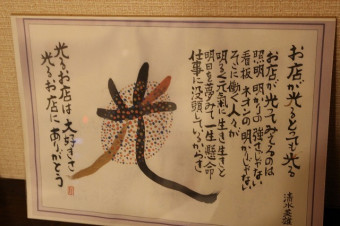 お店が光るとっても光る
お店が光ってみえるのは
照明の明かりの強さじゃない
看板ネオンの明かりじゃない
そこに働く人々が
明るく元氣に生き生きと
明日を夢みて一生懸命
仕事に没頭しているからさ
光
光るお店は大好きさ
光るお店にありがとう
清水英雄